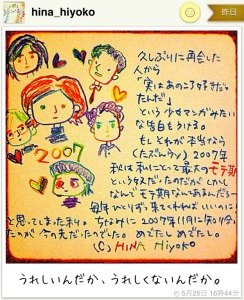 hina_hiyoko
昨日
久しぶりに再会した
人から
「実はあのころ好きだっ
たんだ」
という少女マンガみたい
な告白をうける。
もしそれが本当なら
(たぶんウソ) 2007年
秋は私にとって最大のモテ期
という年だったのだがしかし
なんでモテ期なんてあるんだろう
毎年ひとりずつ来てくれればいいのに
と思ってしまった私。ちなみに2007年11月に知り合っ
たのが今の夫だったのでした。めでたしめでたし。
2007
(C) HINA HiYOKO
うれしいんだか、うれしくないんだか。
5月25日 16時44分